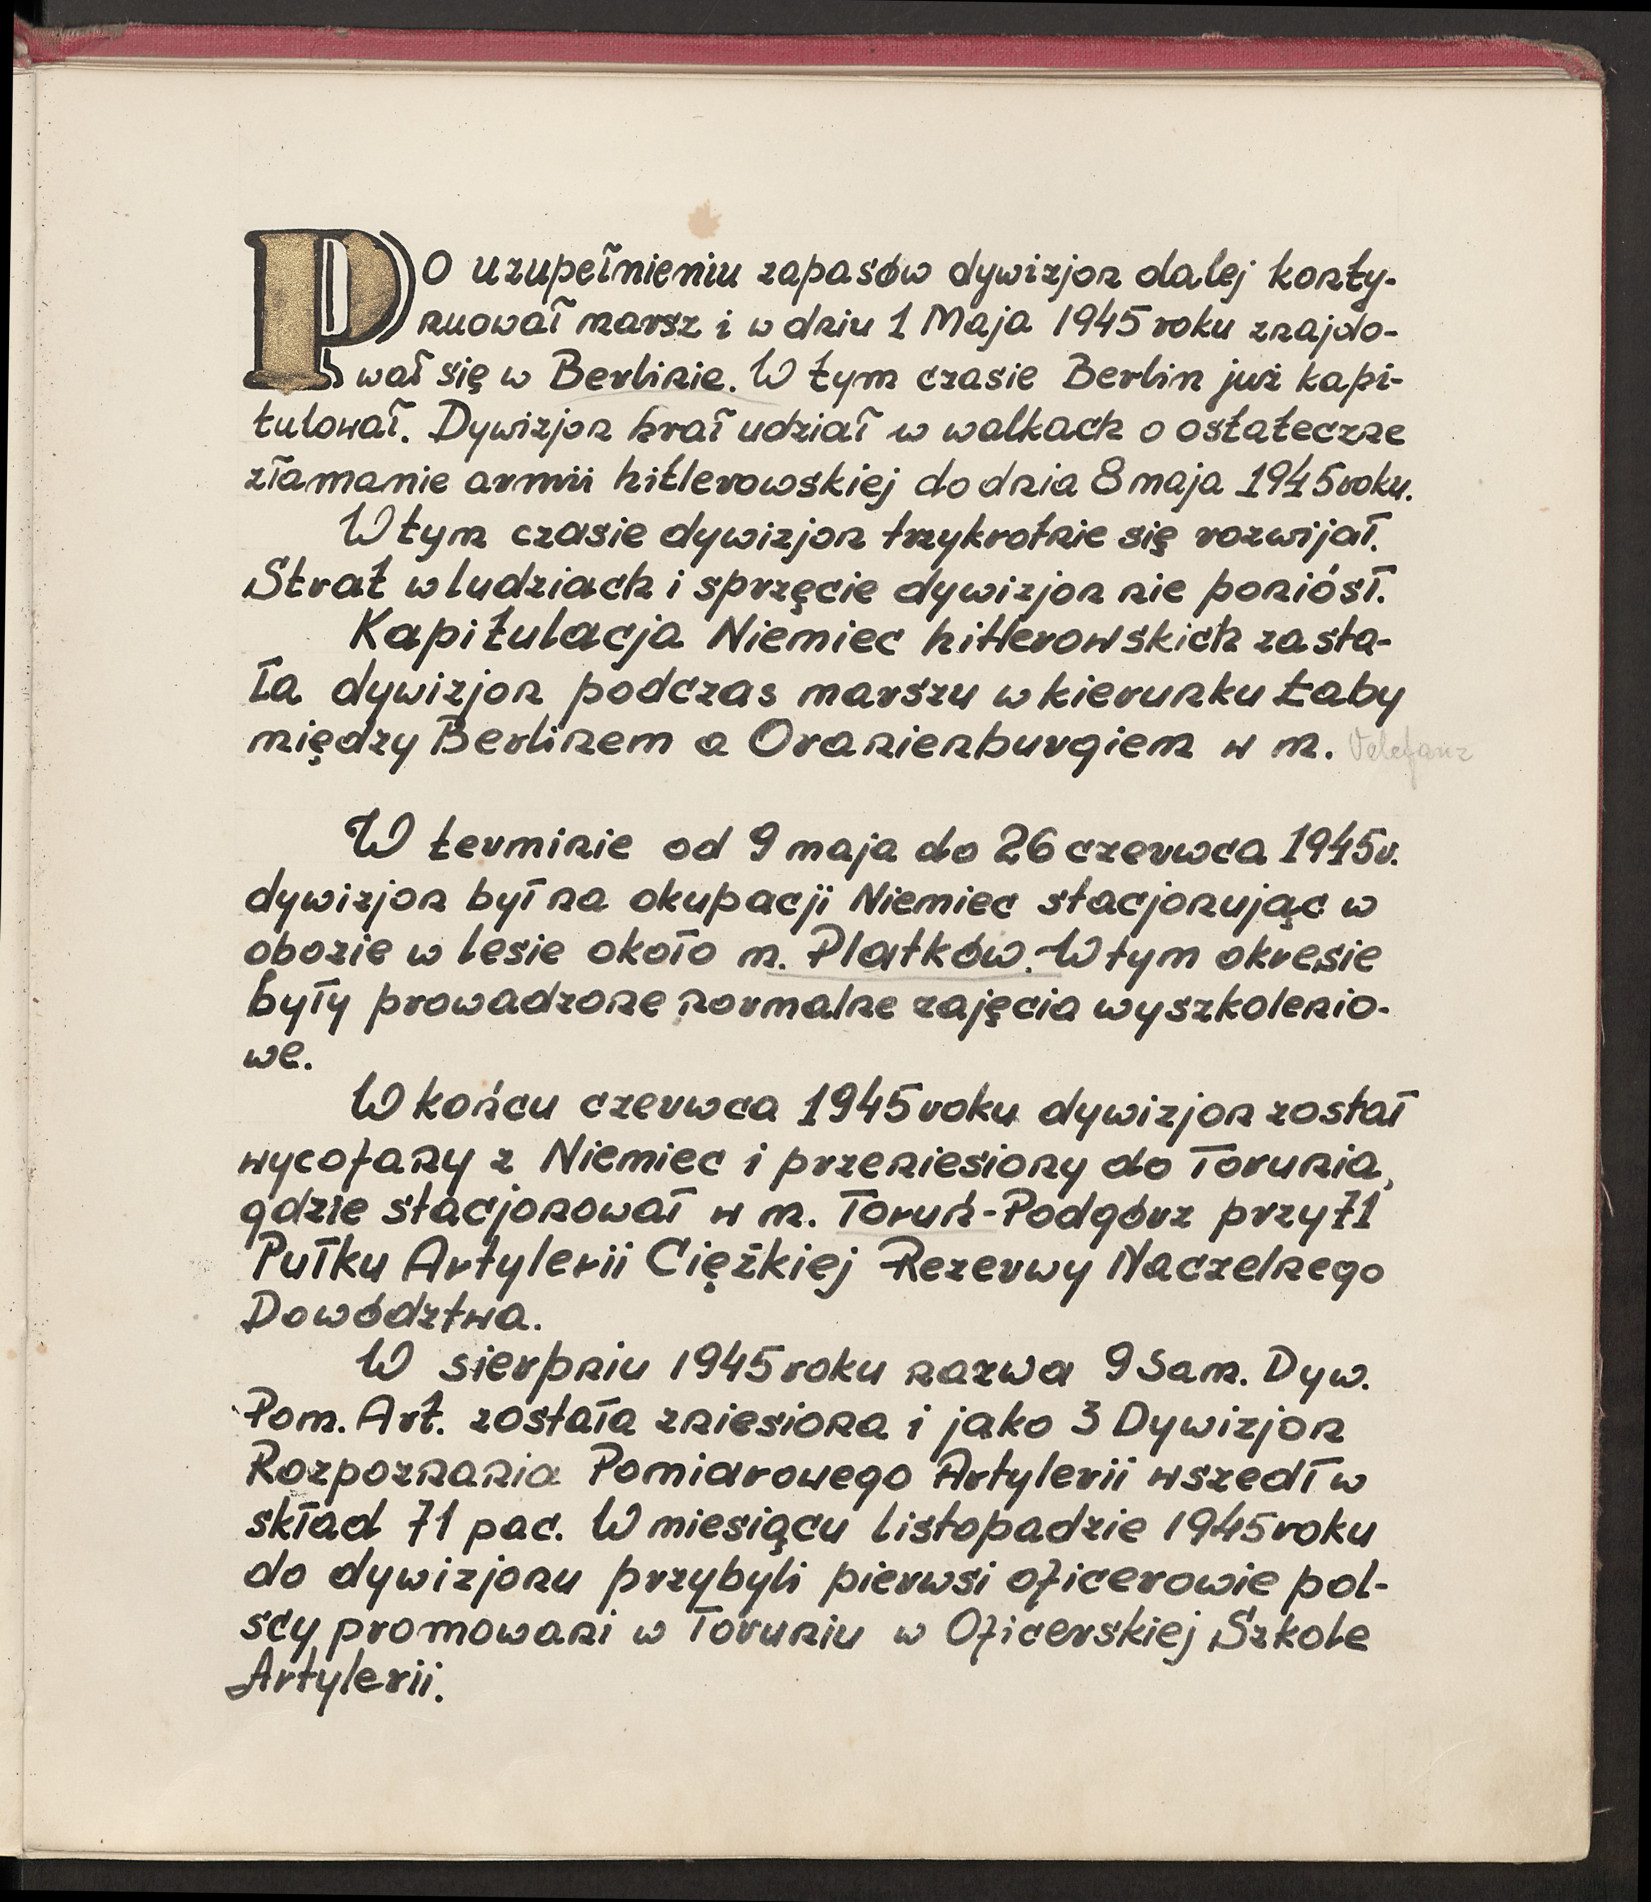 PO uzupełnieniu zapasów dywizjon dalej konty-
nuował marsz i w dniu 1 Maja 1945 roku znajdo-
wał się w Berlinie. W tym czasie Berlin już kapi-
tulował. Dywizjon brał udział w walkach o ostateczne
złamanie armii hitlerowskiej do dnia 8 maja 1945 roku.
W tym czasie dywizjon trzykrotnie się rozwijał.
Strat w ludziach i sprzęcie dywizjon nie poniósł.
Kapitulacja Niemiec hitlerowskich zasta-
ła dywizjon podczas marszu w kierunku Łaby
między Berlinem a Oranienburgiem w m.
W terminie od 9 maja do 26 czerwca 1945 r.
dywizjon był na okupacji Niemiec stacjonując w
obozie w lesie około m. Platków. W tym okresie
były prowadzone normalne zajęcia wyszkolenio-
we.
W końcu czerwca 1945 roku dywizjon został
wycofany z Niemiec i przeniesiony do Torunia,
gdzie stacjonował w m. Toruń-Podgórz przy 71
Pułku Artylerii Ciężkiej Rezerwy Naczelnego
Dowództwa.
W sierpniu 1945 roku nazwa 9 Sam. Dyw.
Pom. Art. została zniesiona i jako 3 Dywizjon
Rozpoznania Pomiarowego Artylerii wszedł w
skład 71 pac. W miesiącu listopadzie 1945 roku
do dywizjonu przybyli pierwsi oficerowie pol-
scy promowani w Toruniu w Oficerskiej Szkole
Artylerii.